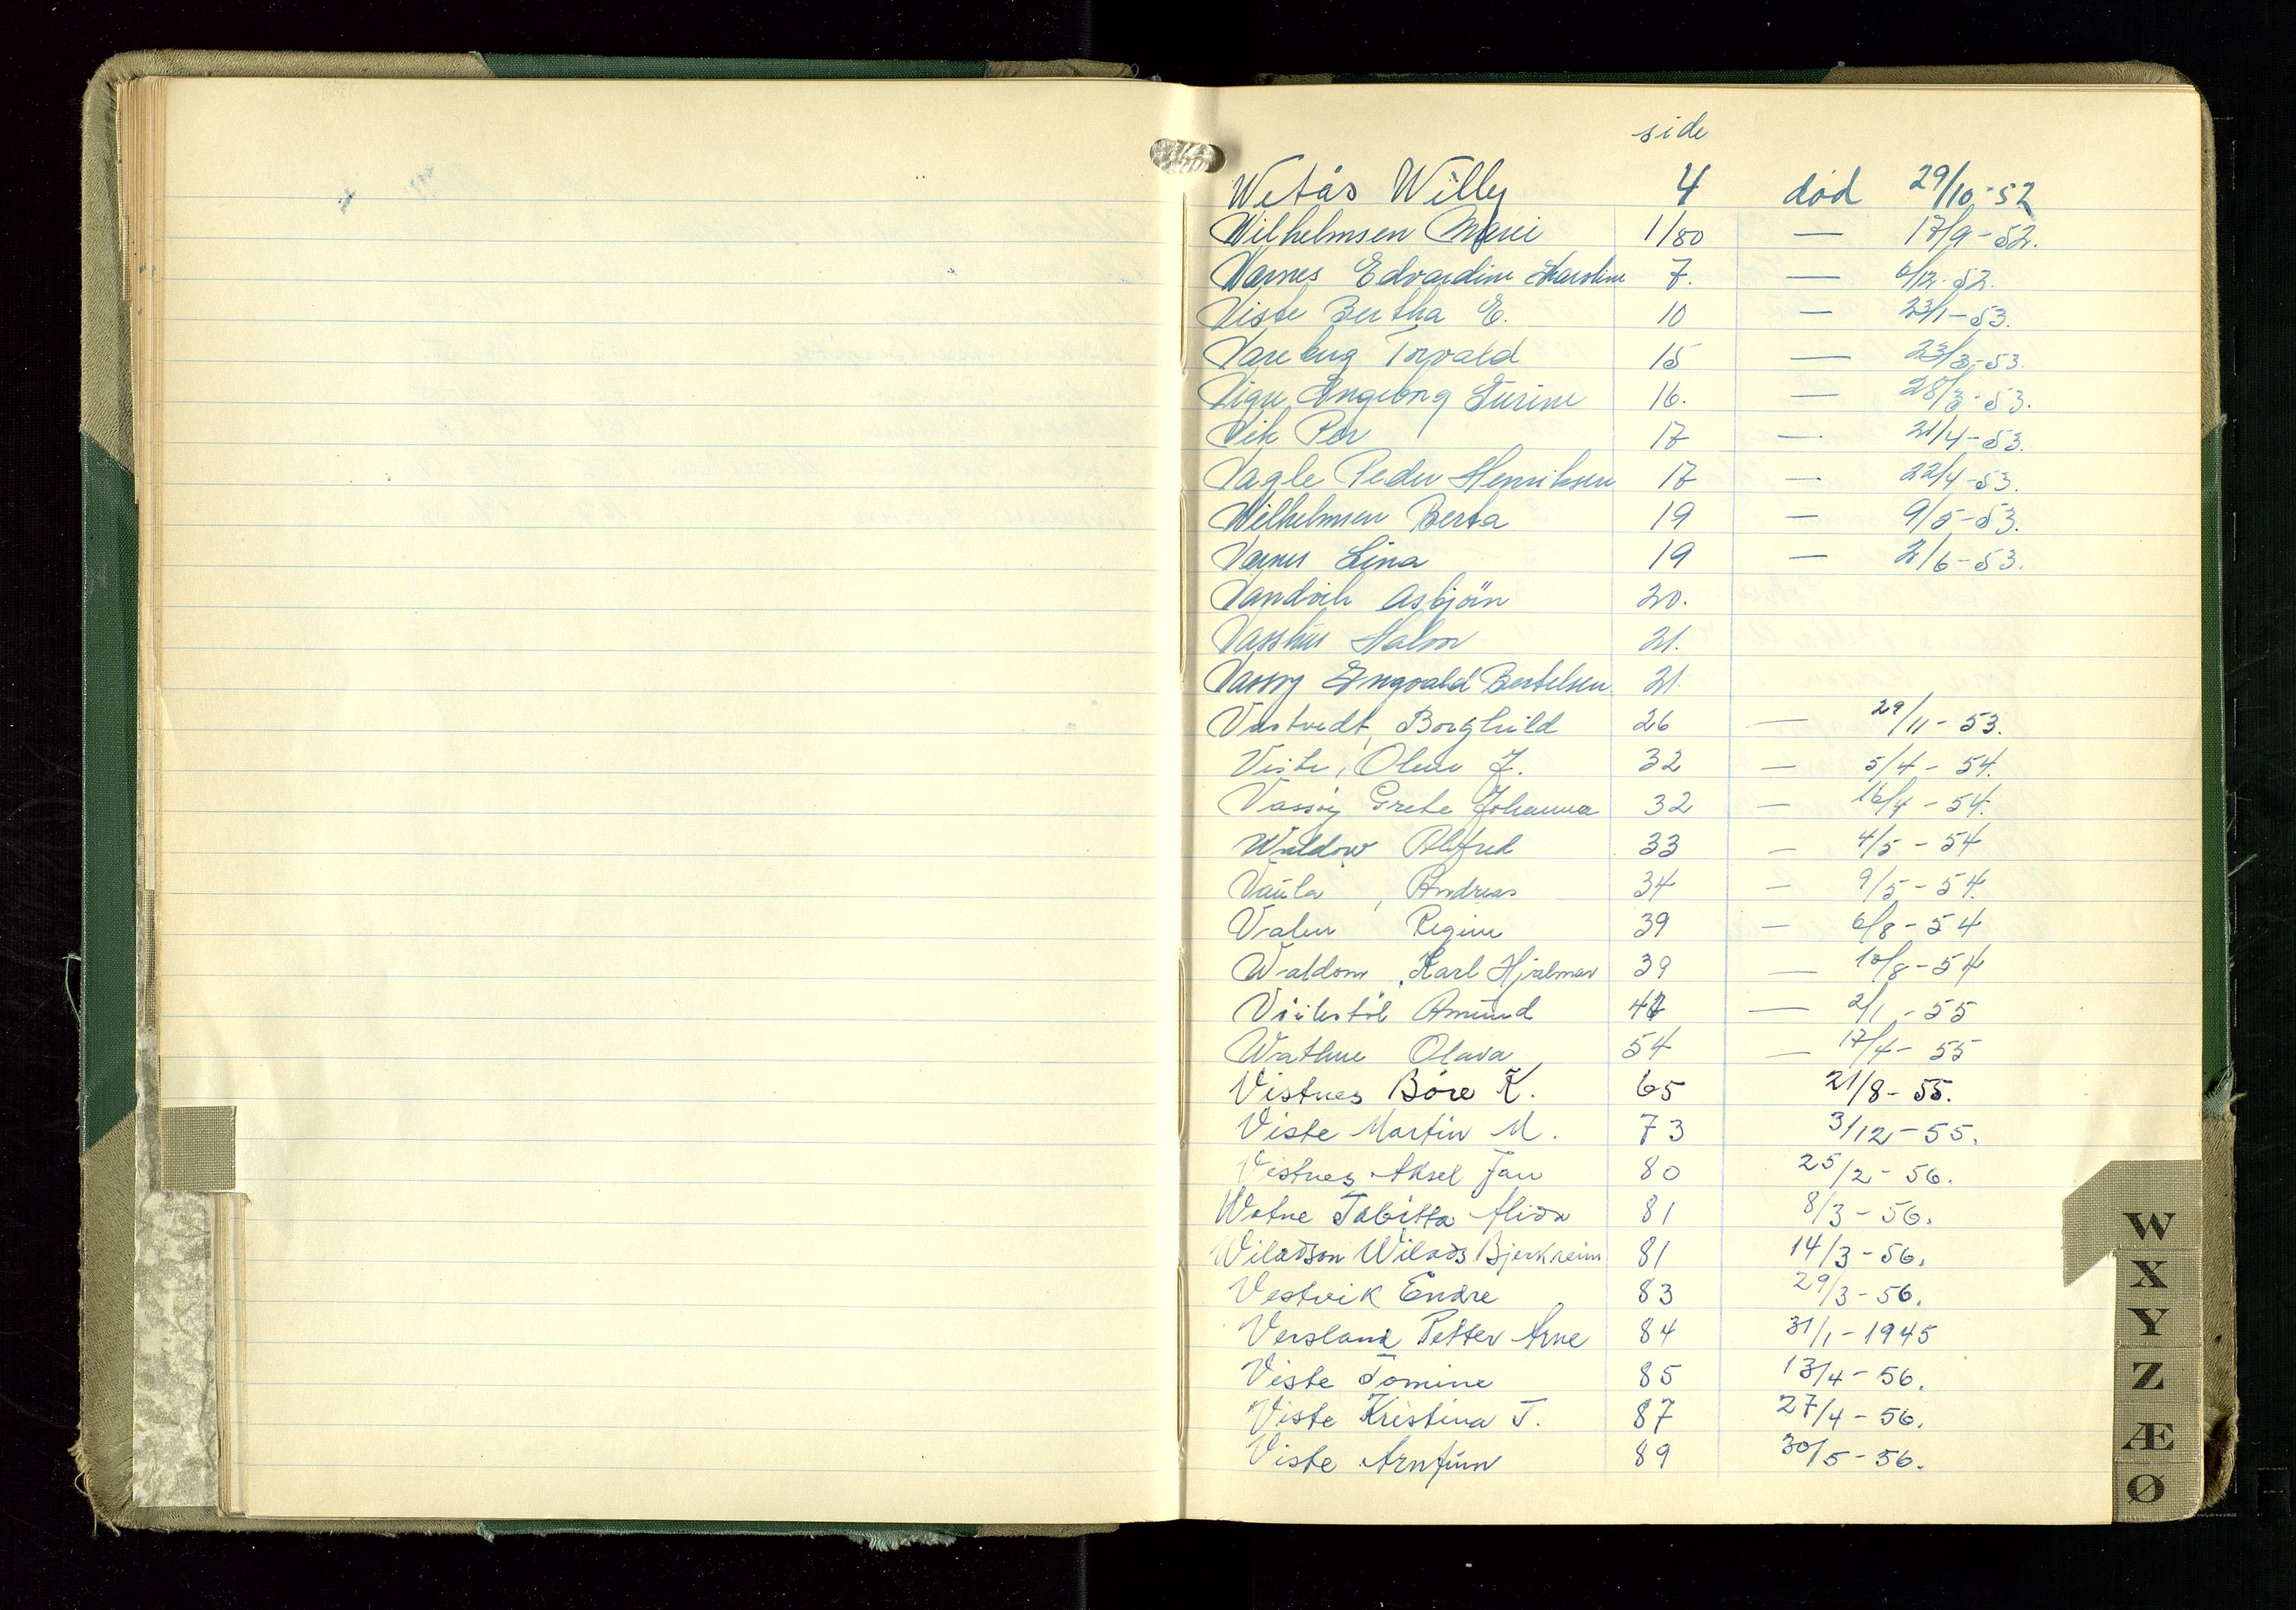 side
Wetås Willy 4 død 29/10-52
Wilhelmsen Marie 1/80 — 17/9-52.
Varnes Edvardine Karoline 7. — 6/12-52.
Viste Bertha E. 10 — 23/1-53.
Vareberg Torvald 15 — 23/3-53.
Vigre Ingeborg Turine 16. — 28/3-53.
Vik Per 17 — 21/4-53.
Vagle Peder Henriksen 17 — 22/4-53.
Wilhelmsen Berta 19 — 9/5-53.
Varnes Lina 19 — 2/6-53.
Vandvik Asbjörn 20.
Vasshus Halvor 21.
Vassøy Engvald Bertelsen 21.
Vastvedt, Borghild 26 — 29/11-53.
Viste, Olene J. 32 — 5/4-54.
Vassöy Grete Johanna 32 — 16/4-54.
Waldow Alfred 33 — 4/5-54
Vaula, Andreas 34 — 9/5-54.
Valen Regine 39 — 6/8-54
Waldow, Karl Hjalmar 39 — 10/8-54
Amund — 2/1-55
Wathne Olava 54 — 17/4-55
Vistnes Böre K. 65 21/8-55.
Viste Martin M. 73 3/12-55.
Vistnes Aksel Jan 80 25/2-56.
Watne Tabitta Alida 81 8/3-56.
Wiladson Wilads Bjerkreim 81 14/3-56.
Vestvik Endre 83 29/3-56.
Versland Petter Arne 84 31/1-1945
Viste Tomine 85 13/4-56.
Viste Kristina T. 87 27/4-56.
Viste Arnfinn 89 30/5-56.
W
X
Y
Z
Æ
Ø